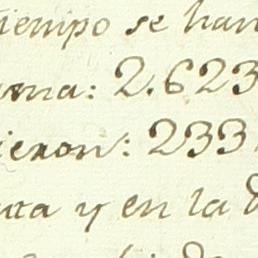 tiempo se han
ma: 2.623
ieron: 233
ta y en la